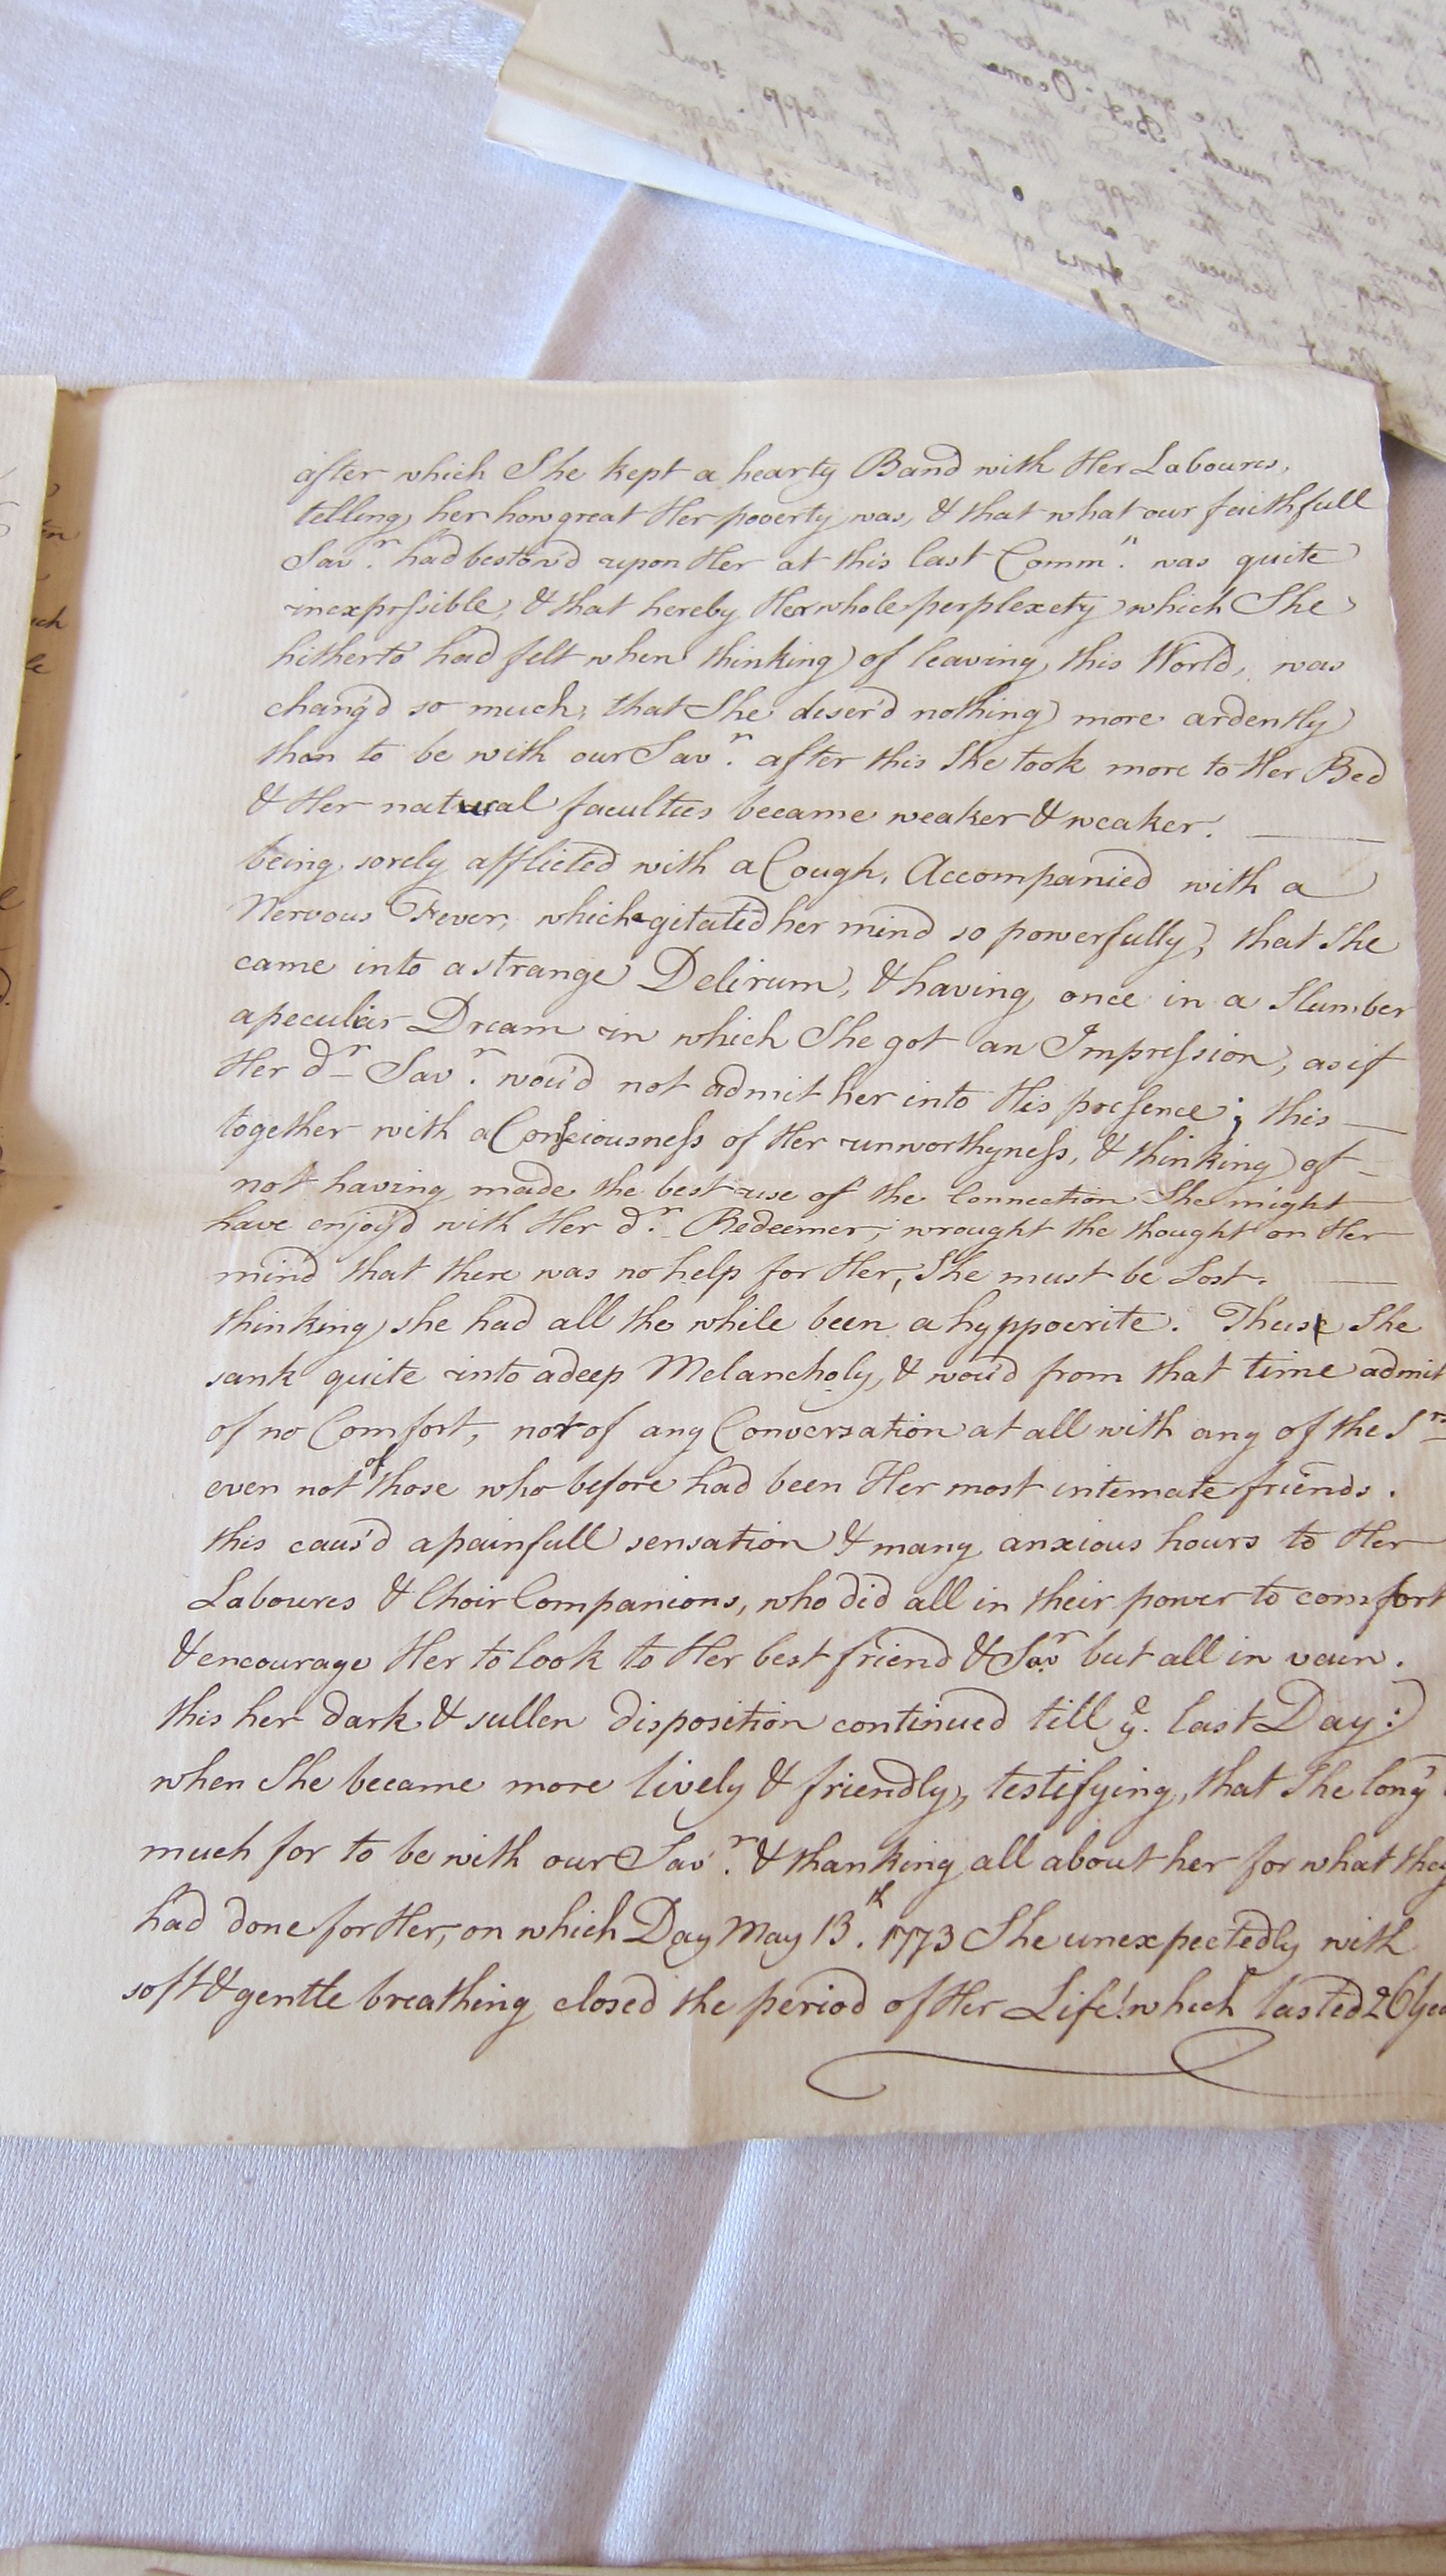 after which She kept a hearty Band with Her Laboures,
telling her how great Her poverty was, & that what our faithfull
Savr. had bestow'd upon Her at this last Commn. was quite
inexpressible, & that hereby Her whole perplexety which She
hitherto had felt when thinking of leaving this World, was
chang'd so much, that She diser'd nothing more ardently
than to be with our Savr. after this She took more to Her Bed
& Her natural faculties became weaker & weaker. —
being sorely afflicted with a Cough, Accompanied with a
Nervous Fever, which agitated her mind so powerfully, that She
came into a strange Delirum, & having once in a Slumber
a peculiar Dream in which She got an Impression, as if
Her dr Savr. wou'd not admit her into His presence; this —
together with a Consciousness of Her unworthyness, & thinking of —
not having made the best use of the Connection She might
have enjoy'd with Her dr. Redeemer, wrought the thought on Her
mind that there was no help for Her, She must be Lost. —
thinking she had all the while been a hyppocrite. Thus She
sank quite into a deep Melancholy, & wou'd from that time admit
of no Comfort, nor of any Conversation at all with any of the Srs
even not of those who before had been Her most intemate friends.
this caus'd a painfull sensation & many anxious hours to Her
Laboures & Choir Companions, who did all in their power to comfort
& encourage Her to look to Her best friend & Savr but all in vain.
this her dark & sullen disposition continued till ye. last Day:
when She became more lively & friendly, testifying, that She long'
much for to be with our Savr. & thanking all about her for what they
had done for Her, on which Day May 13th. 1773 She unexpectedly with
soft & gentle breathing closed the period of Her Life! which lasted 26 Yea